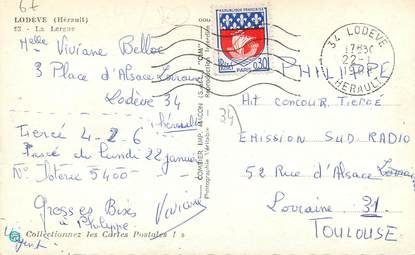 67
LODEVE (Hérault)
52 - La Lergue
Melle Viviane Belloc
3 Place d'Alsace Lorraine
Lodève 34
Hérault
Tiercé 4-2-6
Tiercé du Lundi 22 janvier
N° Loterie 5400
Grosses Bises
à Philippe
Viviane
Urgent
Collectionnez les Cartes Postales
COMBIER IMP. MACON (S.-et-L.) "CIM"
Photographie Véritable
Reproduction Interdite
REPUBLIQUE FRANÇAISE
POSTES
PARIS
0,30
34 LODEVE
17H30
22-1
HERAULT
34
PHILIPPE
Hit CONCOUR TIERCE
EMISSION SUD RADIO
52 Rue d'Alsace Lorraine
Lorraine 31
TOULOUSE